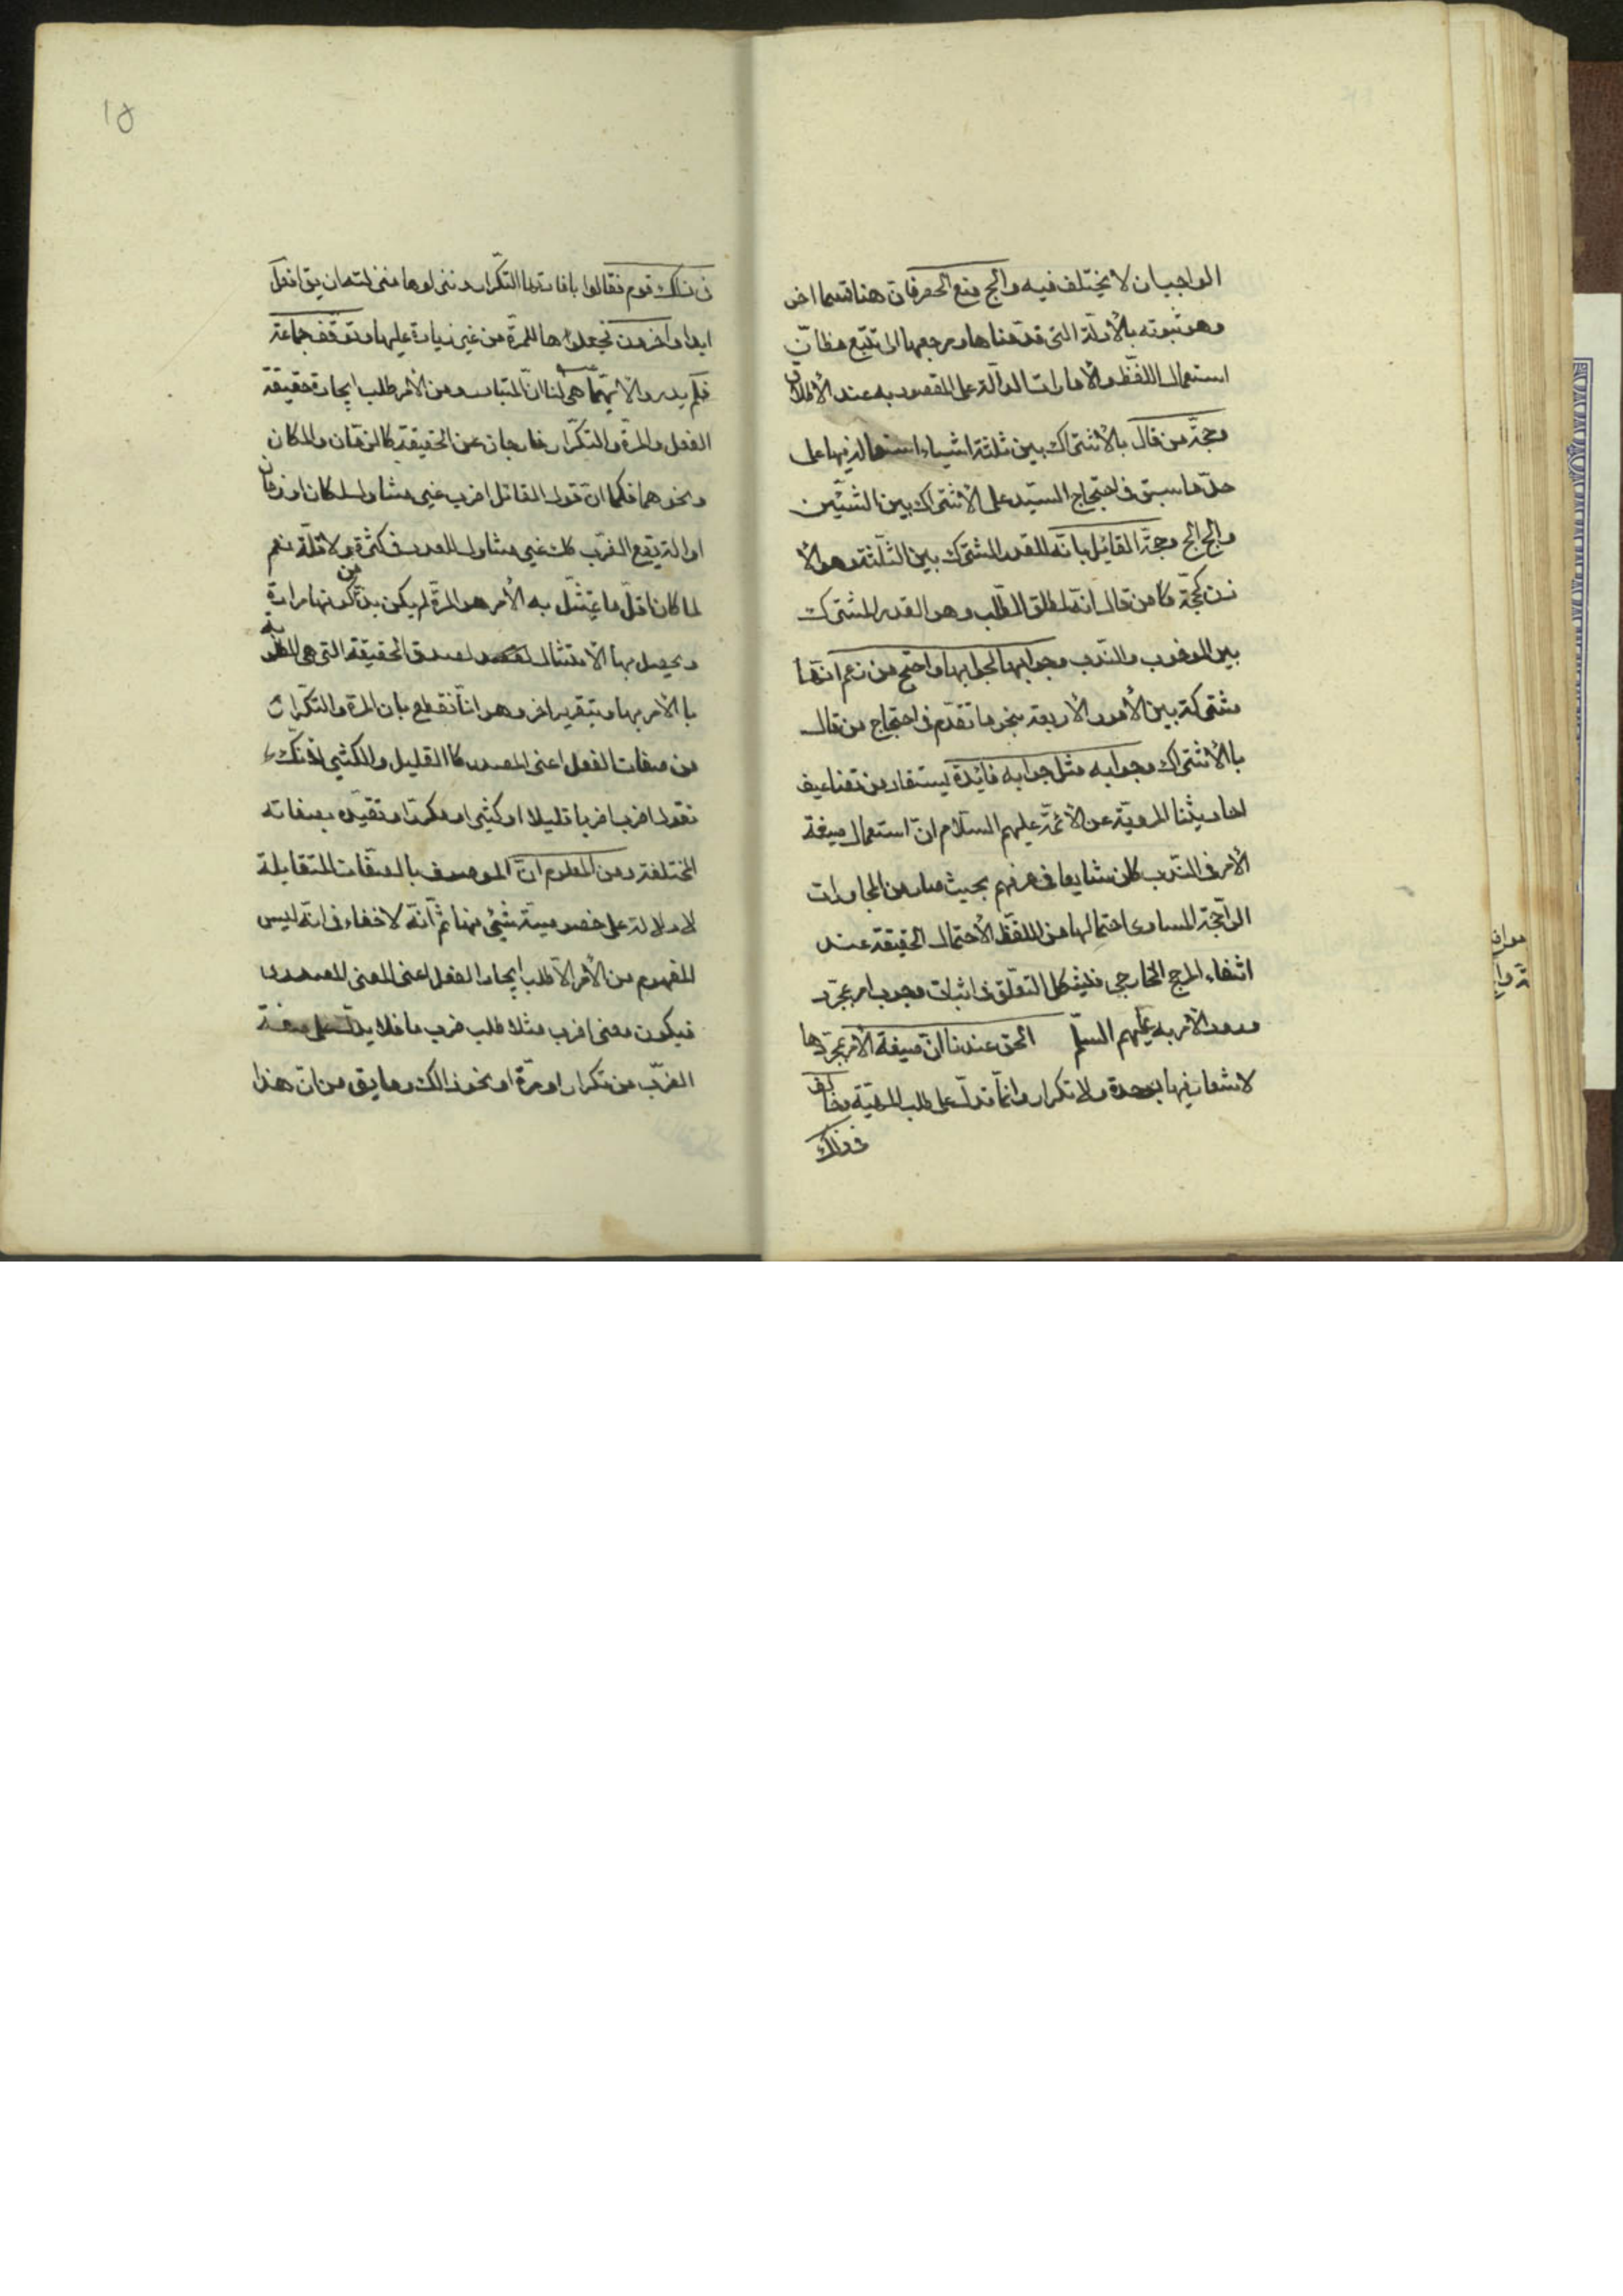 الواجبان لا يختلف فيه والج منع الحصر فان هنا قسما اخر
وهو ثبوته بالأدلّة التى قدمناها ومرجعها الى تتبّع مظانّ
استعمال اللفظ والأمارات الدالّة على المقصود به عند الأطلاق
وحجّة من قال بالأشتراك بين ثلثة اشياء استعماله فيها على
حذو ما سبق فى احتجاج السيّد على الأشتراك بين الشيئين
والج الج وحجّة القائل بانّه للقدر المشترك بين الثلثة وهو الأ
ذن كحجّة من قال انّه لمطلق الطّلب وهو القدر المشترك
بين الوجوب والندب وجوابها كجوابها واحتج من زعم انّها
مشتركة بين الأمور الأربعة بنحو ما تقدّم فى احتجاج من قال
بالأشتراك وجوابه مثل جوابه فائدة يستفاد من تضاعيف
احاديثنا المرويّة عن الأئمّة عليهم السّلام انّ استعمال صيغة
الأمر فى الندب كان شايعا فى عرفهم بحيث صار من المجازات
الراجحة المساوى احتمالها من اللفظ لأحتمال الحقيقة عند
انتفاء المرجح الخارجى فليشكل التعلّق فى اثبات وجوب امر بمجرّد
ورود الأمر به عليهم السلّم الحق عندنا انّ صيغة الأمر بمجرّدها
لا شعار فيها بوحدة ولا تكرار وانّما تدلّ على طلب المهيّة وخالف
فى ذلك
١٥
فى ذلك قوم فقالوا بافادتها التكرار ونزلوها منزلته ان يق افعل
ابدا واخرون فجعلوها للمرّة من غير زيادة عليها وتوقّف جماعة
فلم يدروا لأيّهما هى لنا انّ المتبادر من الأمر طلب ايجاد حقيقة
الفعل والمرّة والتكرار خارجان عن الحقيقة كالزمان والمكان
ونحوهما فكما انّ قول القائل اضرب غير متناول لمكان او زمان
او الة يقع الضّرب كك غير متناول للعدد فى كثرة ولا قلّة نعم
لما كان اقلّ ما يمتثل به الأمر هو المرّة لم يكن بدّ من كونها مرادة
ويحصل بها الأمتثال لصدق الحقيقة التى هى المطلوبة
بالأمر بها وبتقرير اخر وهو انّا نقطع بان المرّة والتكرار
من صفات الفعل اعنى المصدر كالقليل والكثير لأنّك
تقول اضرب ضربا قليلا او كثيرا او مكررا وتقيّده بصفاته
المختلفة ومن المعلوم انّ الموصوف بالصّفات المتقابلة
لا دلالة على خصوصيّة شئ منها ثمّ انّه لا خفاء فى انّه ليس
المفهوم من الأمر الّا طلب ايجاد الفعل اعنى المعنى المصدرى
فيكون معنى اضرب مثلا طلب ضرب ما فلا يدلّ على صفة
الضّرب من تكرار او مرّة او نحو ذالك وما يق من انّ هذا